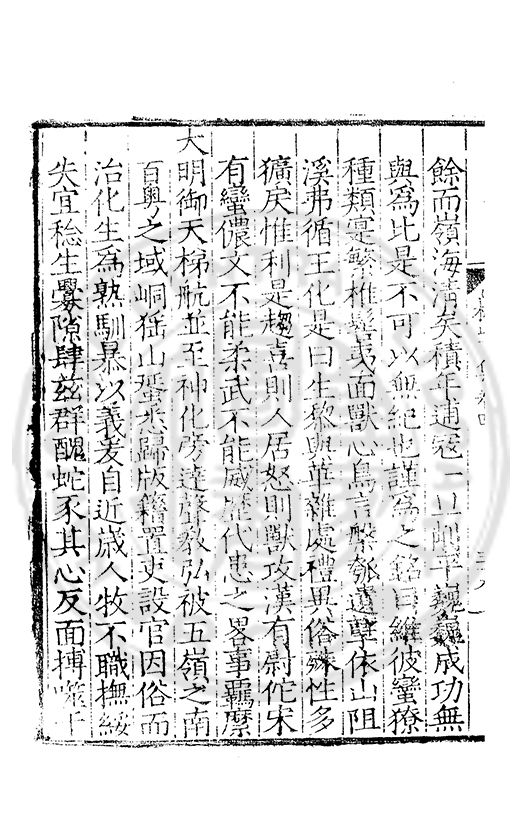 餘而嶺海清矣積年逋寇一旦削平巍巍成功無
與爲比是不可以無紀也謹爲之銘曰維彼蠻獠
種類寔繁椎髻夷面獸心鳥言槃瓠遺孽依山阻
溪弗循王化是曰生黎與華雜處禮異俗殊性多
獷戾惟利是趨喜則人居怒則獸攻漢有尉佗宋
有蠻儂文不能柔武不能威歷代患之畧事羈縻
大明御天梯航並至神化旁達聲敎弘被五嶺之南
百粤之域峒猺山蜑悉歸版籍置吏設官因俗而
治化生爲熟馴暴以義爰自近歲人牧不職撫綏
失宜稔生釁隙肆兹群醜蛇豕其心反面搏噬